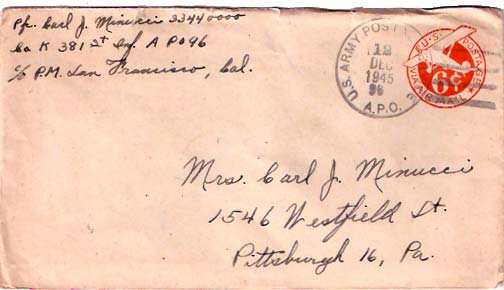 Pfc. Carl J. Minucci 33440000
Co. K 381st Inf. APO 96
c/o P.M. San Francisco, Cal.
U.S. ARMY POST
12
DEC
1945
96
A.P.O.
U.S. POSTAGE
6¢
VIA AIR MAIL
Mrs. Carl J. Minucci
1546 Westfield St.
Pittsburgh 16, Pa.